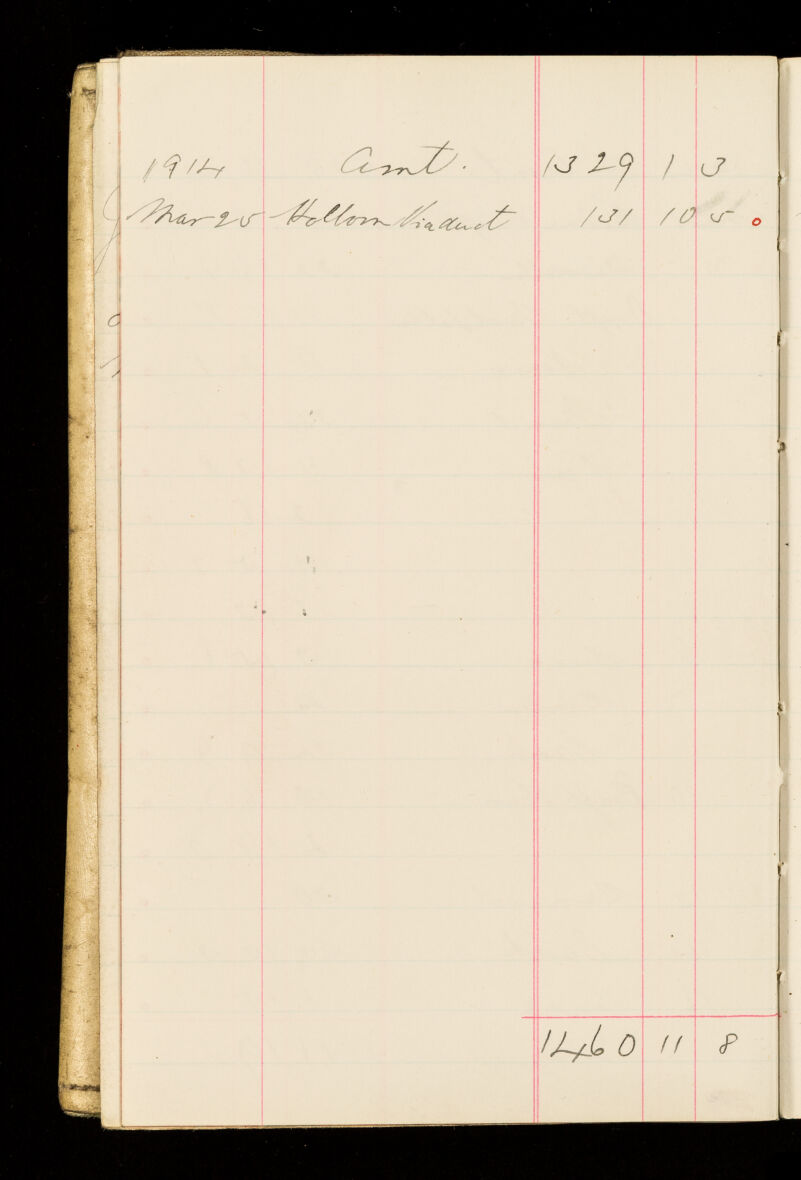 1914 Amt. 1329 1 3
Mar 25 Holborn Viaduct 131 10 5 o
1460 11 8